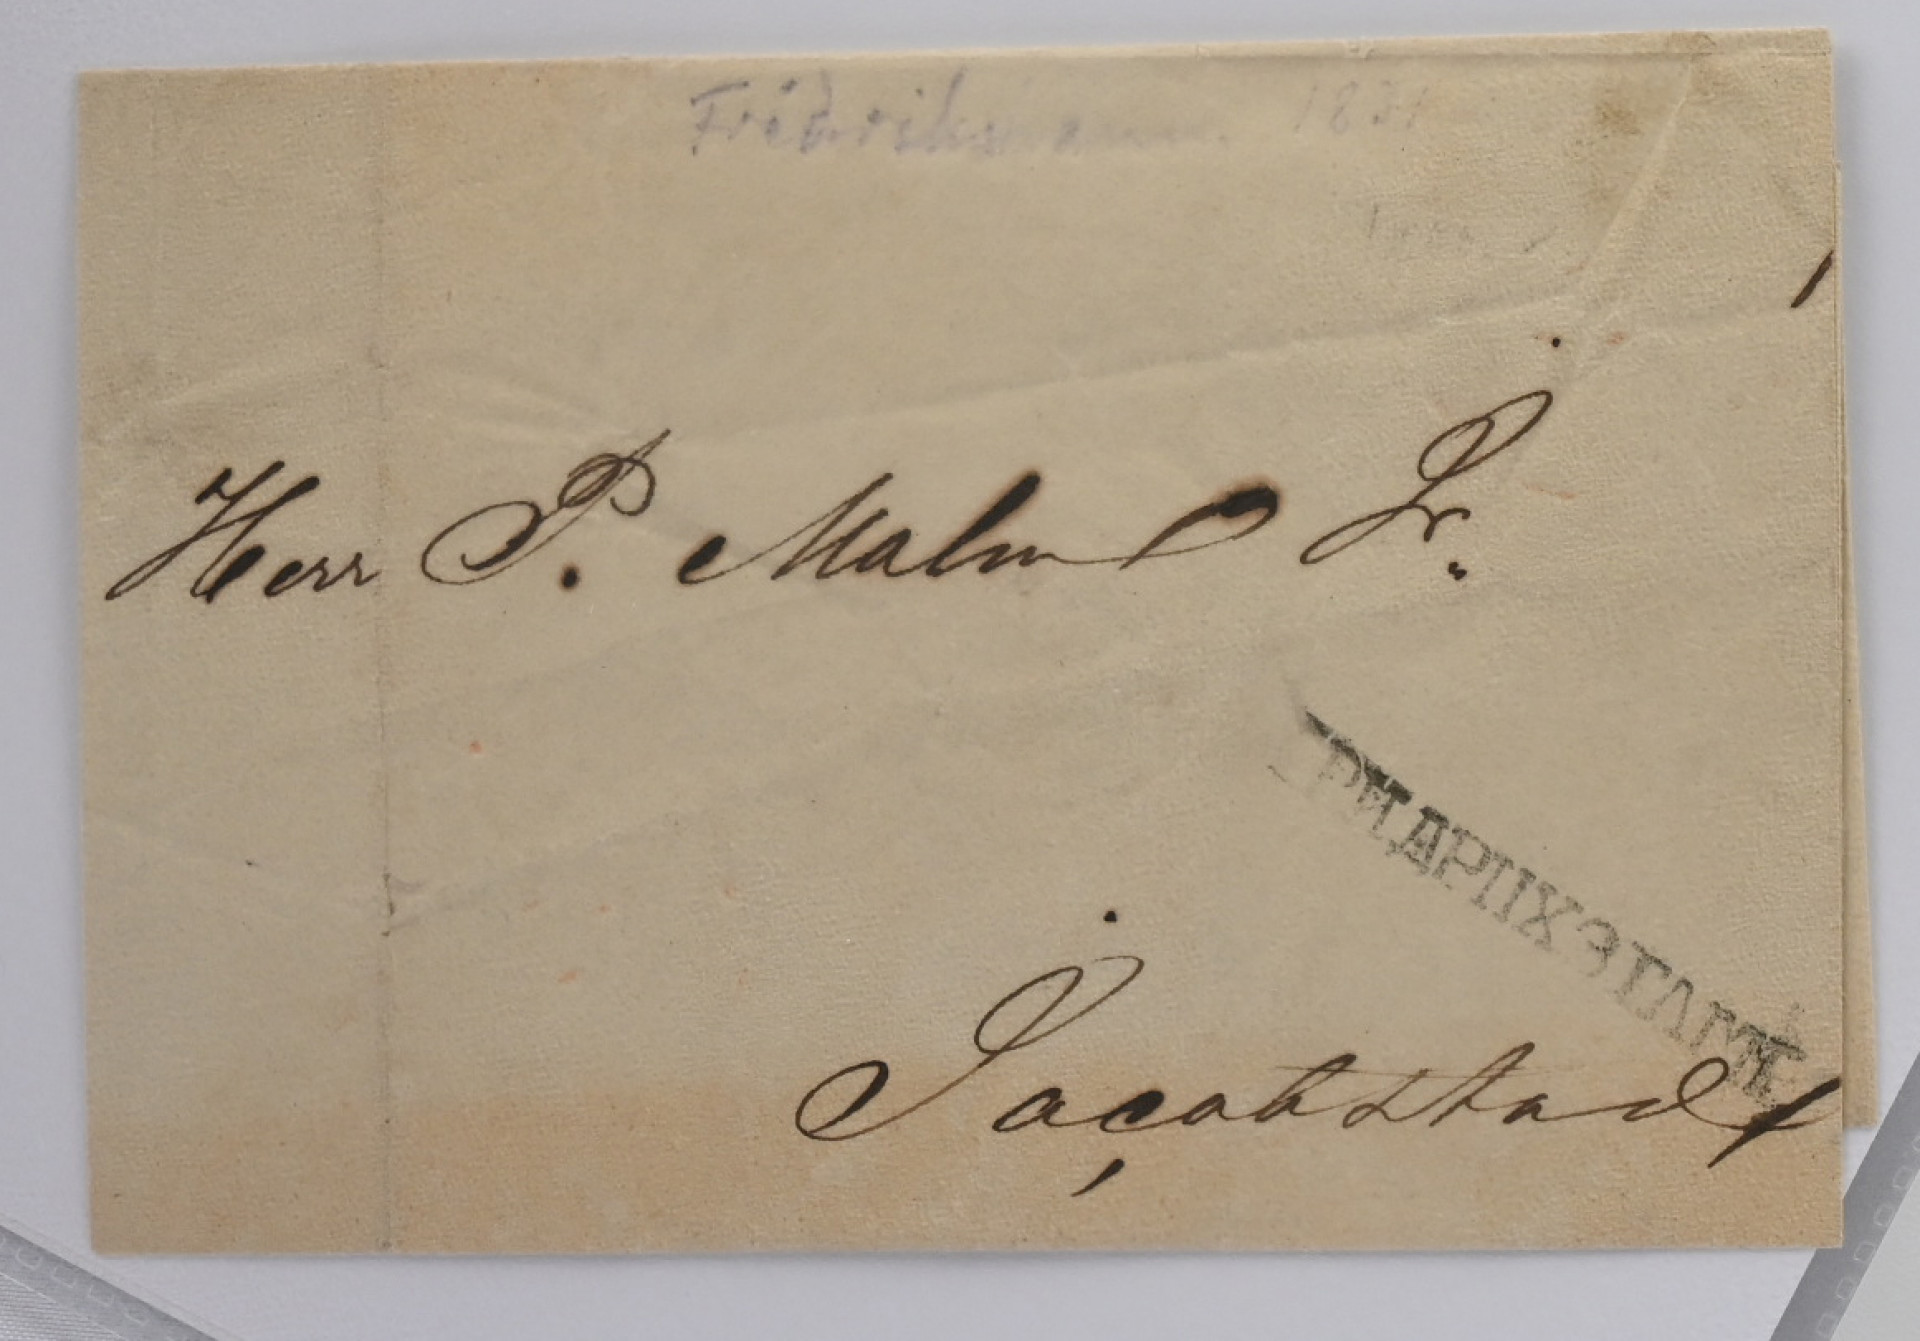 Fredrikshamn. 1831
Herr P. Malm Jr.
РИДРИХЗГАМЪ
Jacobstad